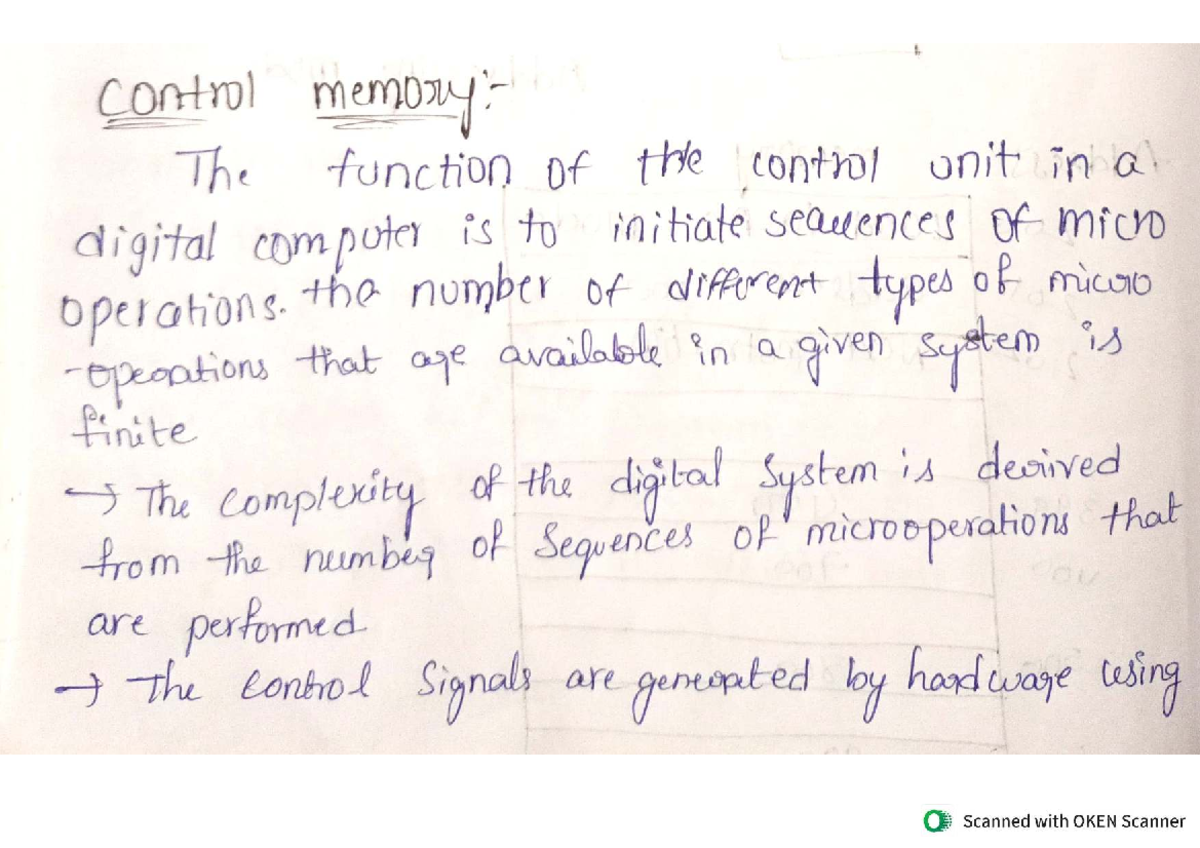 Control memory:-
The function of the control unit in a
digital computer is to initiate sequences of micro
operations. the number of different types of micro
-operations that are available in a given system is
finite
→ The complexity of the digital System is derived
from the number of Sequences of microoperations that
are performed
→ The control Signals are generated by hardware using
Scanned with OKEN Scanner